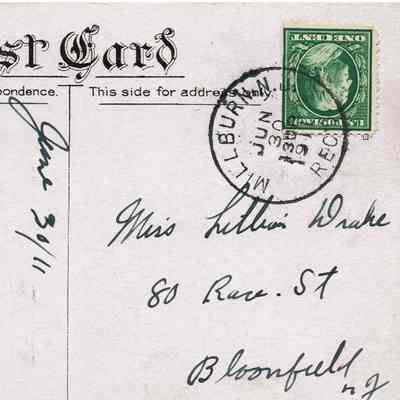 st Card
pondence.
This side for address only.
MILLBURN N.J.
JUN
30
130P
191
REC'D
June 30/11
Miss Lillian Drake
80 Race. St
Bloomfield
n J